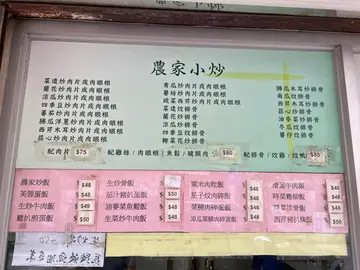 農家小炒
菜遠炒肉片或肉眼根
蘭花炒肉片或肉眼根
涼瓜炒肉片或肉眼根
四季豆炒肉片或肉眼根
蕃茄炒肉片或肉眼根
勝瓜洋蔥炒肉片或肉眼根
西芹木耳炒肉片或肉眼根
茄心炒肉片或肉眼根
青瓜炒肉片或肉眼根
薯絲炒肉片或肉眼根
咸菜西芹炒肉片或肉眼根
菜遠炆排骨
蘭花炒排骨
涼瓜炆排骨
四季豆炆排骨
椰菜花炒排骨
勝瓜木耳炒排骨
南瓜炆排骨
西芹木耳炒排骨
茄心炒排骨
油麥菜炒排骨
冬瓜炆排骨
薯仔炆排骨
配肉片 $75
配雞絲/肉眼根/魚鬆/豬頸肉 $80
配排骨/炆雞/ $80
農家炒飯 $48
芙蓉蛋飯 $48
生炒牛肉飯 $49
雞扒煎蛋飯 $50
生炒骨飯 $48
茄汁豬扒蛋飯 $50
油麥菜魚鬆飯 $48
生菜炒牛肉飯 $48
粟米肉粒飯 $48
茄子炆肉碎飯 $48
菜脯肉碎蛋飯 $48
涼瓜菜脯肉碎飯 $48
滑蛋牛肉飯 $48
時菜雞柳飯 $48
時菜排骨飯 $48
西芹豬扒絲飯 $48